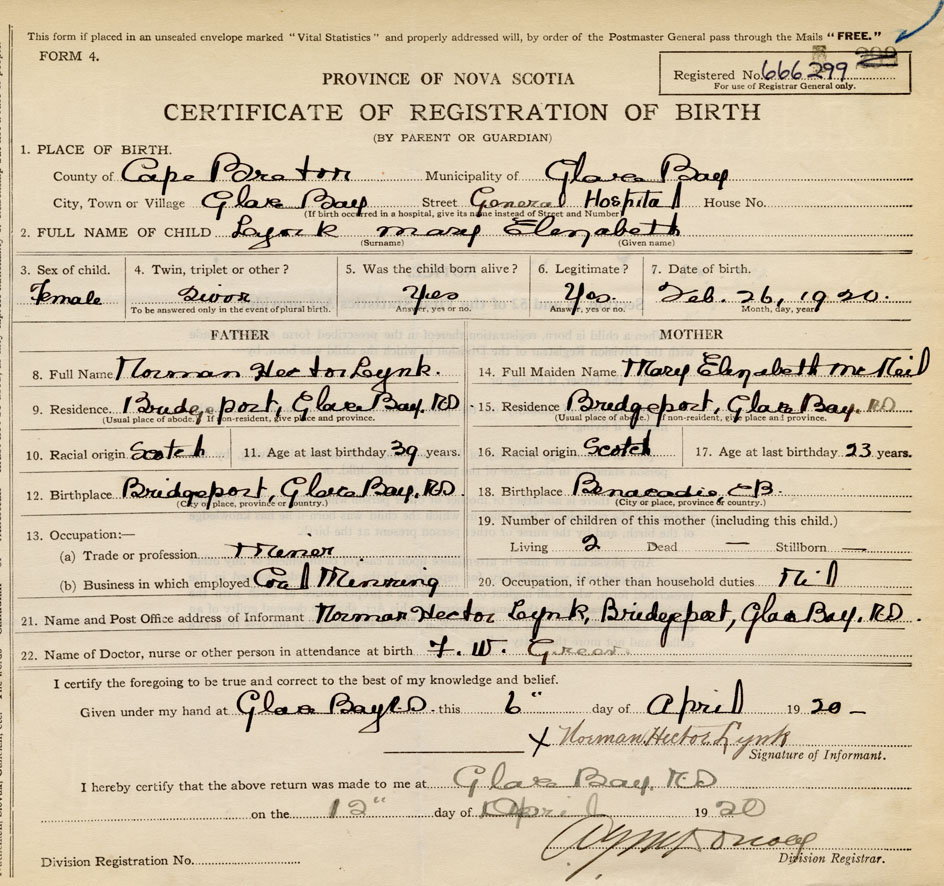 This form if placed in an unsealed envelope marked "Vital Statistics" and properly addressed will, by order of the Postmaster General pass through the Mails "FREE."
FORM 4.
Registered No. 666299
For use of Registrar General only.
PROVINCE OF NOVA SCOTIA
CERTIFICATE OF REGISTRATION OF BIRTH
(BY PARENT OR GUARDIAN)
1. PLACE OF BIRTH.
County of Cape Breton Municipality of Glace Bay
City, Town or Village Glace Bay Street General Hospital House No.
(If birth occurred in a hospital, give its name instead of Street and Number)
2. FULL NAME OF CHILD Lynk Mary Elizabeth
(Surname) (Given name)
3. Sex of child. 4. Twin, triplet or other? 5. Was the child born alive? 6. Legitimate? 7. Date of birth.
Female Yes Yes. Feb. 26, 1920.
To be answered only in the event of plural birth. Answer, yes or no. Answer, yes or no. Month, day, year
FATHER MOTHER
8. Full Name Norman Hector Lynk. 14. Full Maiden Name Mary Elizabeth McNeil
9. Residence. Bridgeport, Glace Bay. 15. Residence Bridgeport, Glace Bay.
(Usual place of abode. If non-resident, give place and province. (Usual place of abode. If non-resident, give place and province.
10. Racial origin Scotch 11. Age at last birthday 39 years. 16. Racial origin Scotch 17. Age at last birthday 23 years.
12. Birthplace Bridgeport, Glace Bay. 18. Birthplace Benacadie, CB.
(City or place, province or country.) (City or place, province or country.)
13. Occupation:— 19. Number of children of this mother (including this child.)
(a) Trade or profession Miner Living 2 Dead — Stillborn —
(b) Business in which employed Coal Mining 20. Occupation, if other than household duties Nil
21. Name and Post Office address of Informant Norman Hector Lynk, Bridgeport, Glace Bay.
22. Name of Doctor, nurse or other person in attendance at birth F. W. Green.
I certify the foregoing to be true and correct to the best of my knowledge and belief.
Given under my hand at Glace Bay this 6" day of April 1920 -
X Norman Hector Lynk
Signature of Informant.
I hereby certify that the above return was made to me at Glace Bay.
on the 12" day of April 1920
Division Registration No. Division Registrar.